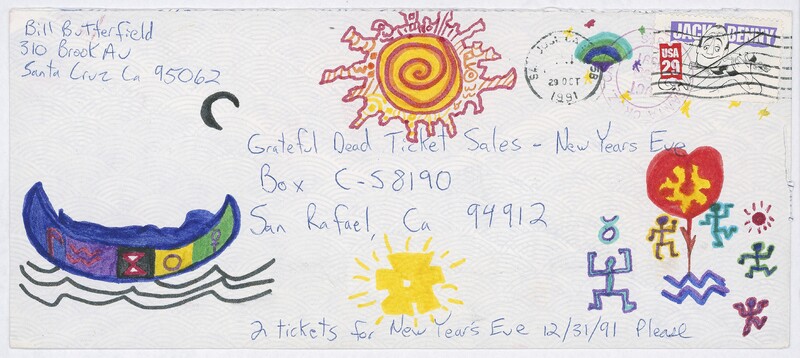 Bill Butterfield
310 Brook Av
Santa Cruz Ca 95062
29 OCT
1991
JACK BENNY
USA
29
Grateful Dead Ticket Sales - New Years Eve
Box C-S8190
San Rafael, Ca 94912
2 tickets for New Year's Eve 12/31/91 Please